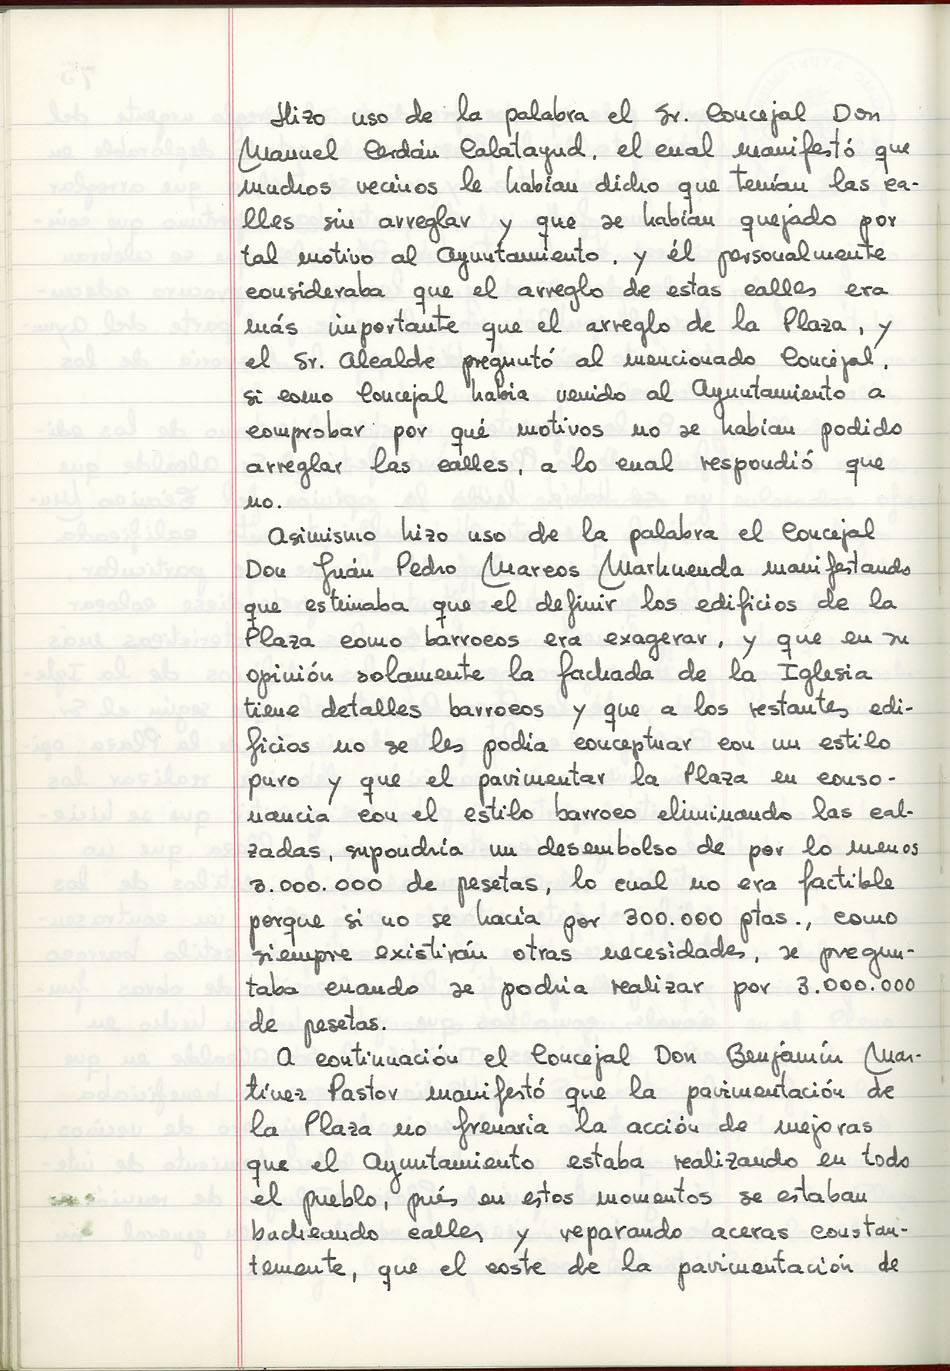 Hizo uso de la palabra el Sr. Concejal Don
Manuel Cerdán Calatayud, el cual manifestó que
muchos vecinos le habían dicho que tenían las ca-
lles sin arreglar y que se habían quejado por
tal motivo al Ayuntamiento, y él personalmente
consideraba que el arreglo de estas calles era
más importante que el arreglo de la Plaza, y
el Sr. Alcalde preguntó al mencionado Concejal,
si como Concejal había venido al Ayuntamiento a
comprobar por qué motivos no se habían podido
arreglar las calles, a lo cual respondió que
no.
Asimismo hizo uso de la palabra el Concejal
Don Juán Pedro Marcos Marhuenda manifestando
que estimaba que el definir los edificios de la
Plaza como barrocos era exagerar, y que en su
opinión solamente la fachada de la Iglesia
tiene detalles barrocos y que a los restantes edi-
ficios no se les podía conceptuar con un estilo
puro y que el pavimentar la Plaza en conso-
nancia con el estilo barroco eliminando las cal-
zadas, supondría un desembolso de por lo menos
3.000.000 de pesetas, lo cual no era factible
porque si no se hacía por 300.000 ptas., como
siempre existirán otras necesidades, se pregun-
taba cuando se podría realizar por 3.000.000
de pesetas.
A continuación el Concejal Don Benjamín Mar-
tínez Pastor manifestó que la pavimentación de
la Plaza no frenaria la acción de mejoras
que el Ayuntamiento estaba realizando en todo
el pueblo, pués en estos momentos se estaban
bacheando calles y reparando aceras constan-
temente, que el coste de la pavimentación de